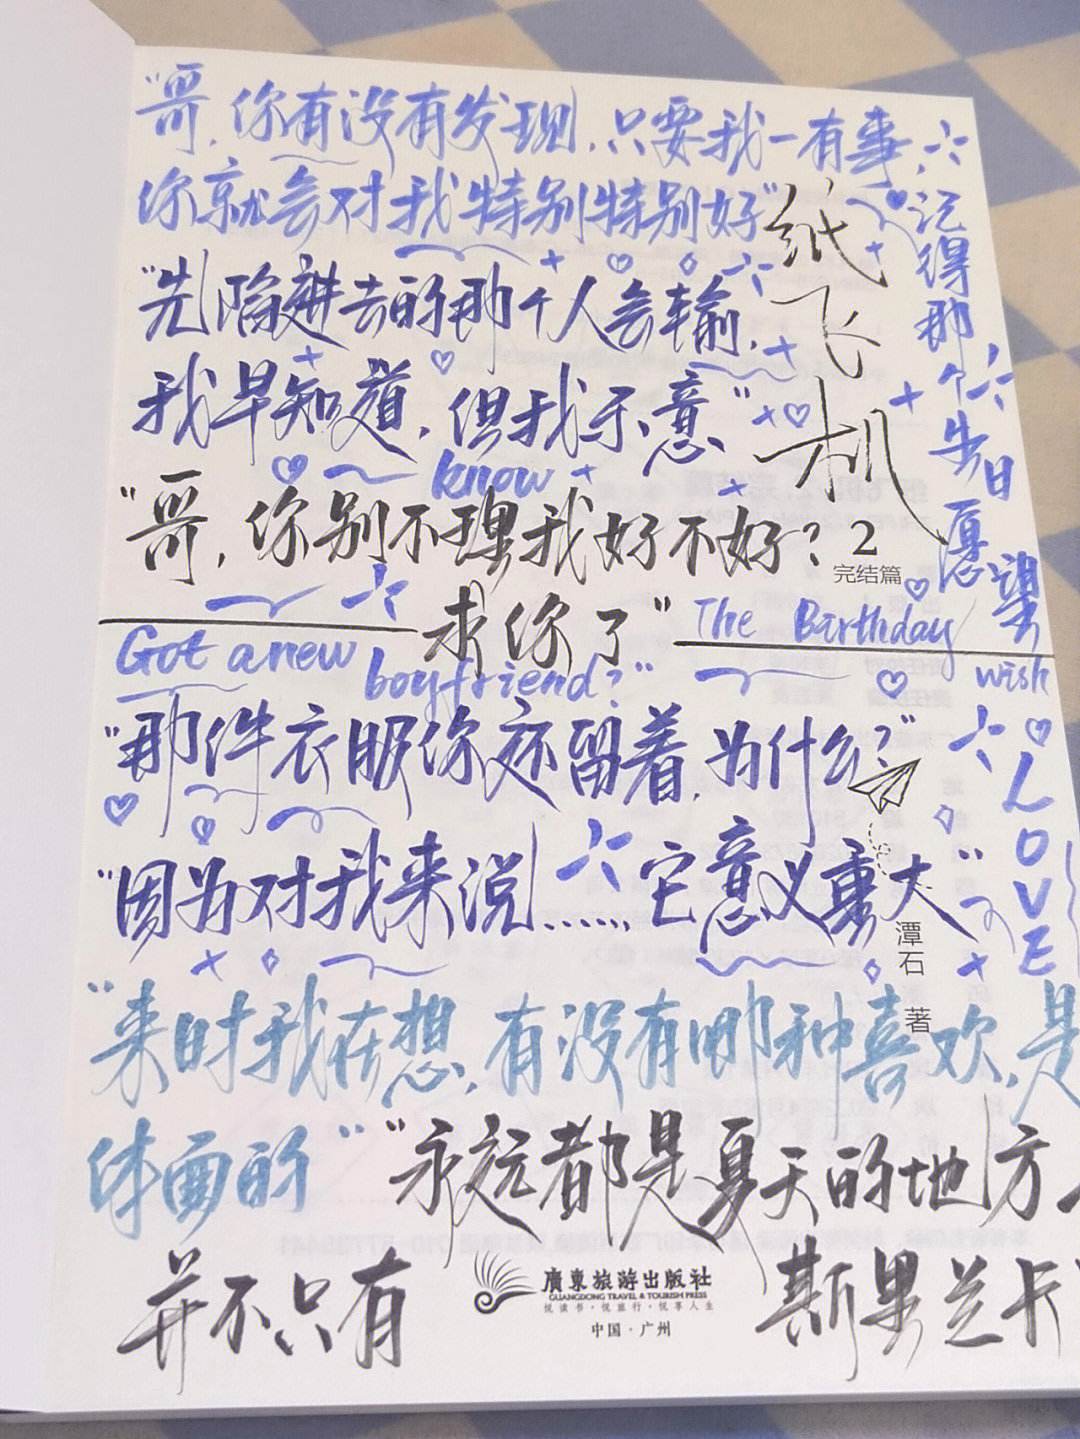 “哥，你有没有发现，只要我一有事，
你就会对我特别特别好”
“先陷进去的那个人会输，
我早知道，但我不示意”
know
“哥，你别不理我好不好？
求你了”
纸飞机
2
完结篇
记得那个生日愿望
The Birthday
wish
LOVE
Got a new
boyfriend?
“那件衣服你还留着，为什么？”
“因为对我来说……，它意义重大”
潭石 著
“来时我在想，有没有哪种喜欢，是
体面的”
“永远都是夏天的地方
并不只有
斯里兰卡
廣東旅游出版社
GUANGDONG TRAVEL & TOURISM PRESS
悦读书·悦旅行·悦享人生
中国·广州